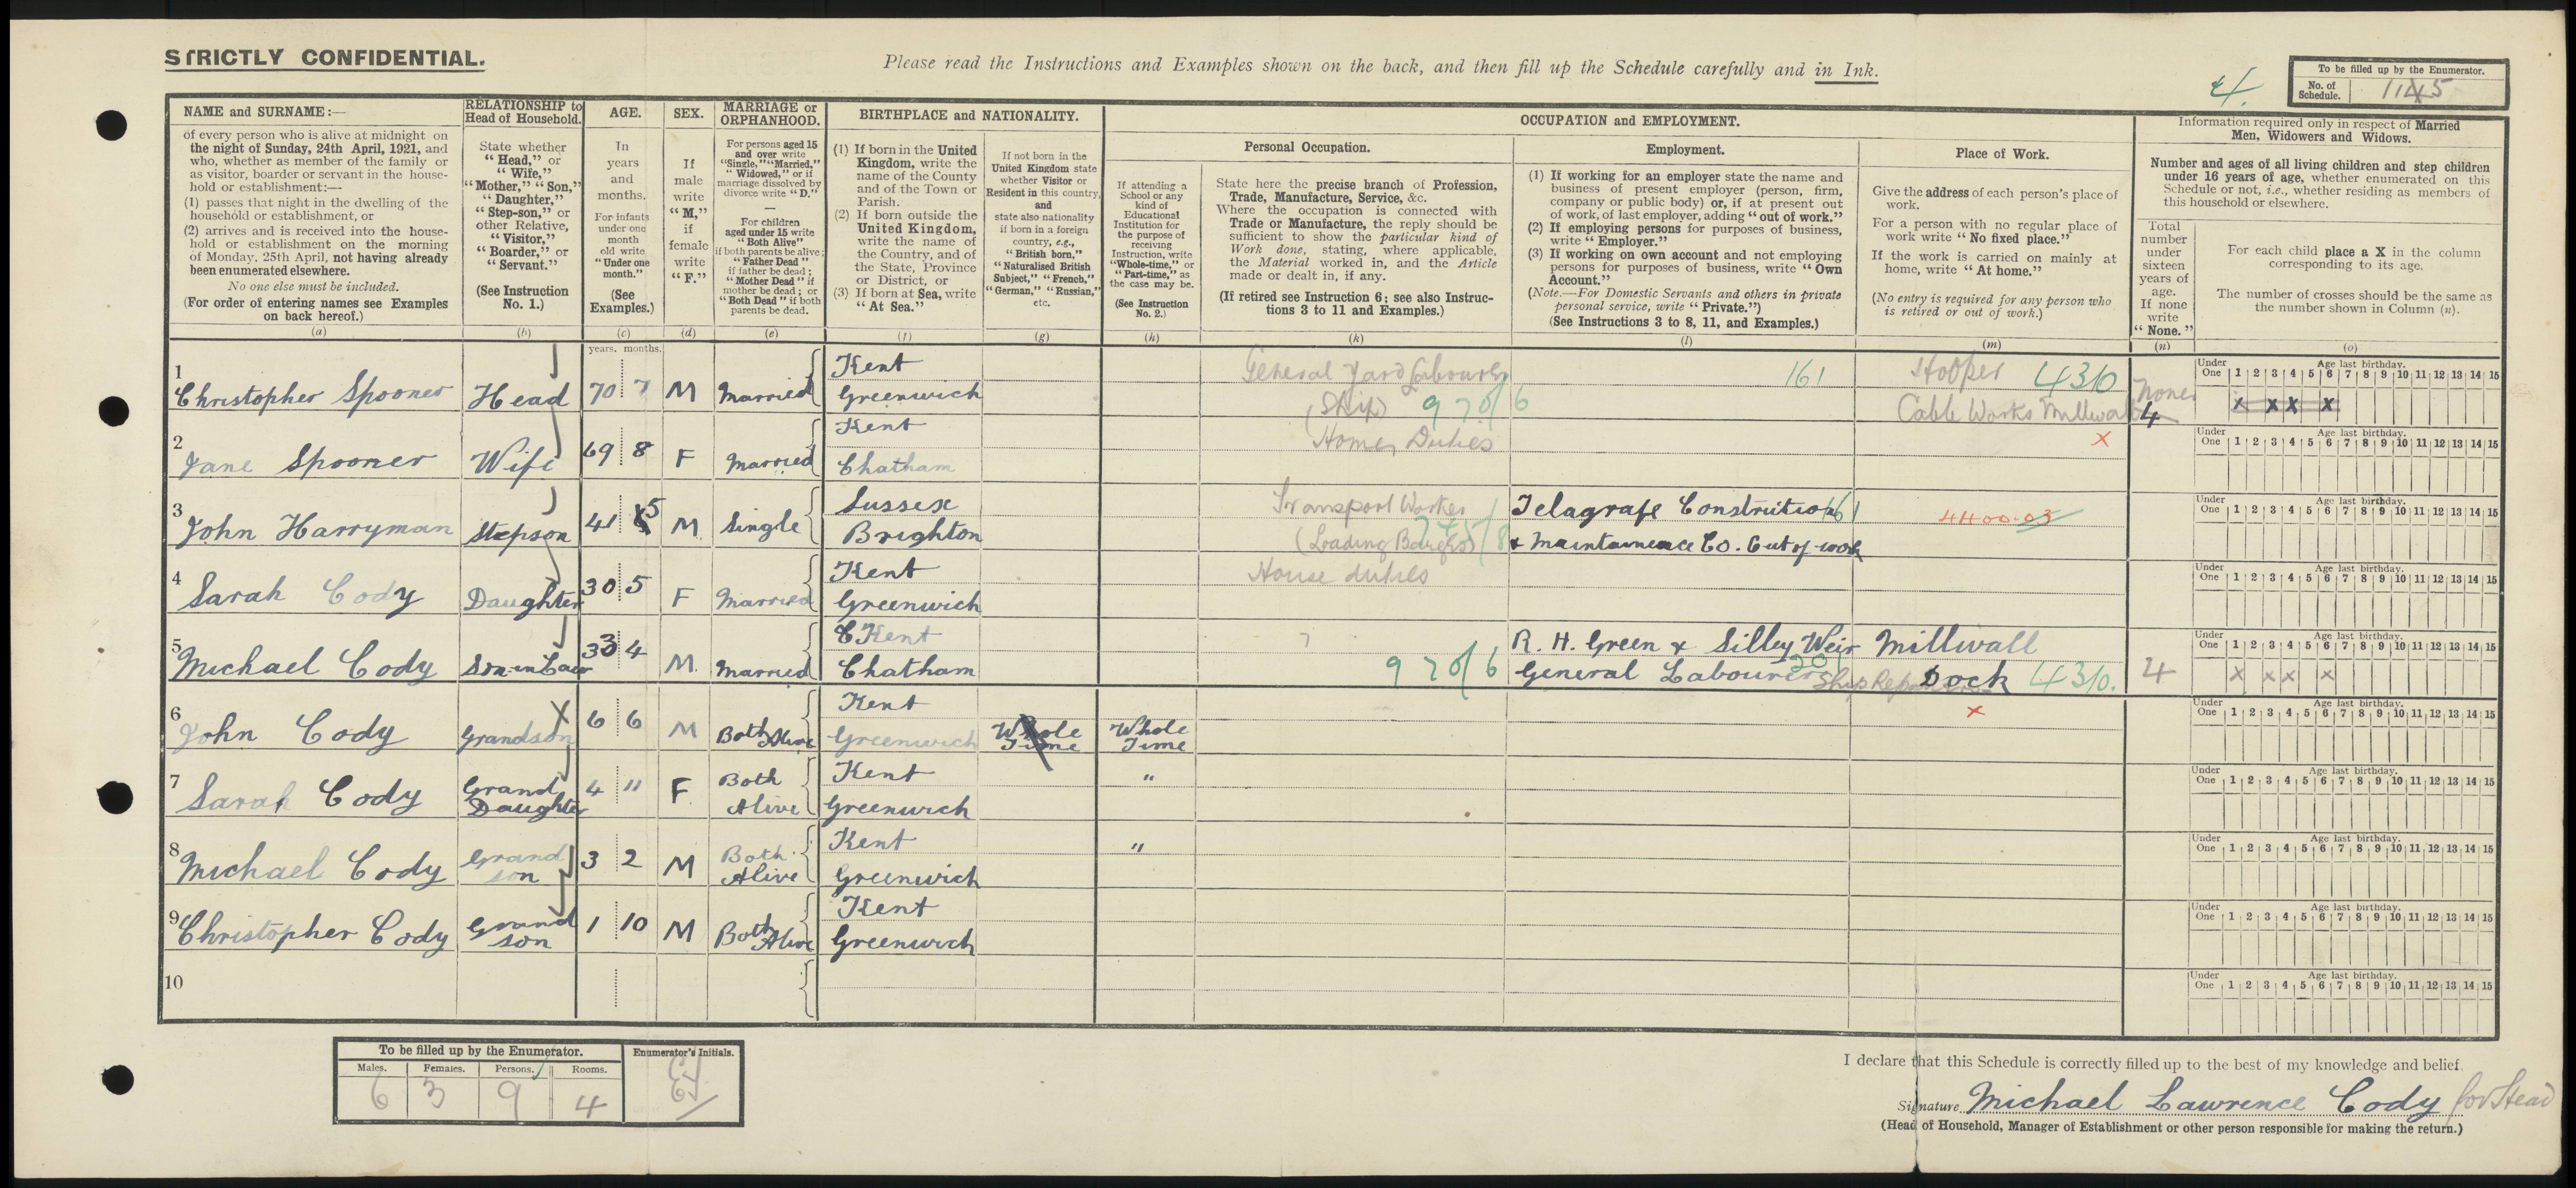 STRICTLY CONFIDENTIAL.
Please read the Instructions and Examples shown on the back, and then fill up the Schedule carefully and in Ink.
4.
To be filled up by the Enumerator.
No. of Schedule. 1145
NAME and SURNAME:—
of every person who is alive at midnight on
the night of Sunday, 24th April, 1921, and
who, whether as member of the family or
as visitor, boarder or servant in the house-
hold or establishment:—
(1) passes that night in the dwelling of the
household or establishment, or
(2) arrives and is received into the house-
hold or establishment on the morning
of Monday, 25th April, not having already
been enumerated elsewhere.
No one else must be included.
(For order of entering names see Examples
on back hereof.)
(a)
RELATIONSHIP to
Head of Household.
State whether
"Head," or
"Wife,"
"Mother," "Son,"
"Daughter,"
"Step-son," or
other Relative,
"Visitor,"
"Boarder," or
"Servant."
(See Instruction
No. 1.)
(b)
AGE.
In
years
and
months.
For infants
under one
month
old write
"Under one
month."
(See
Examples.)
(c)
SEX.
If
male
write
"M,"
if
female
write
"F."
(d)
MARRIAGE or
ORPHANHOOD.
For persons aged 15
and over write
"Single," "Married,"
"Widowed," or if
marriage dissolved by
divorce write "D."
—
For children
aged under 15 write
"Both Alive"
if both parents be alive;
"Father Dead"
if father be dead;
"Mother Dead" if
mother be dead; or
"Both Dead" if both
parents be dead.
(e)
BIRTHPLACE and NATIONALITY.
(1) If born in the United
Kingdom, write the
name of the County
and of the Town or
Parish.
(2) If born outside the
United Kingdom,
write the name of
the Country, and of
the State, Province
or District, or
(3) If born at Sea, write
"At Sea."
(f)
If not born in the
United Kingdom state
whether Visitor or
Resident in this country,
and
state also nationality
if born in a foreign
country, e.g.,
"British born,"
"Naturalised British
Subject," "French,"
"German," "Russian,"
etc.
(g)
OCCUPATION and EMPLOYMENT.
If attending a
School or any
kind of
Educational
Institution for
the purpose of
receiving
Instruction, write
"Whole-time," or
"Part-time," as
the case may be.
(See Instruction
No. 2.)
(h)
Personal Occupation.
State here the precise branch of Profession,
Trade, Manufacture, Service, &c.
Where the occupation is connected with
Trade or Manufacture, the reply should be
sufficient to show the particular kind of
Work done, stating, where applicable,
the Material worked in, and the Article
made or dealt in, if any.
(If retired see Instruction 6; see also Instruc-
tions 3 to 11 and Examples.)
(k)
Employment.
(1) If working for an employer state the name and
business of present employer (person, firm,
company or public body) or, if at present out
of work, of last employer, adding "out of work."
(2) If employing persons for purposes of business,
write "Employer."
(3) If working on own account and not employing
persons for purposes of business, write "Own
Account."
(Note.—For Domestic Servants and others in private
personal service, write "Private.")
(See Instructions 3 to 8, 11, and Examples.)
(l)
Place of Work.
Give the address of each person's place of
work.
For a person with no regular place of
work write "No fixed place."
If the work is carried on mainly at
home, write "At home."
(No entry is required for any person who
is retired or out of work.)
(m)
Information required only in respect of Married
Men, Widowers and Widows.
Number and ages of all living children and step children
under 16 years of age, whether enumerated on this
Schedule or not, i.e., whether residing as members of
this household or elsewhere.
Total
number
under
sixteen
years of
age.
If none
write
"None."
(n)
For each child place a X in the column
corresponding to its age.
The number of crosses should be the same as
the number shown in Column (n).
(o)
years. months.
1 Christopher Spooner Head 70 7 M Married Kent Greenwich General Yard Labourer (Ship) 970/6 161 Hooper Cable Works Millwall 430 None 4 x x x x
Under One 1 2 3 4 5 6 7 8 9 10 11 12 13 14 15 Age last birthday.
2 Jane Spooner Wife 69 8 F Married Kent Chatham Home Duties x
Under One 1 2 3 4 5 6 7 8 9 10 11 12 13 14 15 Age last birthday.
3 John Harryman Stepson 41 5 M Single Sussex Brighton Transport Worker (Loading Barges) Telagrafe Construtiion 161 & Maintaineace Co. Out of work
Under One 1 2 3 4 5 6 7 8 9 10 11 12 13 14 15 Age last birthday.
4 Sarah Cody Daughter 30 5 F Married Kent Greenwich House duties
Under One 1 2 3 4 5 6 7 8 9 10 11 12 13 14 15 Age last birthday.
5 Michael Cody Son-in-Law 33 4 M Married Kent Chatham 970/6 R. H. Green & Silley Weir General Labourer Millwall Dock 430. 4 x x x x
Under One 1 2 3 4 5 6 7 8 9 10 11 12 13 14 15 Age last birthday.
6 John Cody Grandson 6 6 M Both Alive Kent Greenwich Whole Time Whole Time x
Under One 1 2 3 4 5 6 7 8 9 10 11 12 13 14 15 Age last birthday.
7 Sarah Cody Grand Daughter 4 11 F Both Alive Kent Greenwich "
Under One 1 2 3 4 5 6 7 8 9 10 11 12 13 14 15 Age last birthday.
8 Michael Cody Grand son 3 2 M Both Alive Kent Greenwich "
Under One 1 2 3 4 5 6 7 8 9 10 11 12 13 14 15 Age last birthday.
9 Christopher Cody Grand son 1 10 M Both Alive Kent Greenwich
Under One 1 2 3 4 5 6 7 8 9 10 11 12 13 14 15 Age last birthday.
10
Under One 1 2 3 4 5 6 7 8 9 10 11 12 13 14 15 Age last birthday.
To be filled up by the Enumerator.
Males. Females. Persons. Rooms.
6 3 9 4
Enumerator's Initials.
I declare that this Schedule is correctly filled up to the best of my knowledge and belief.
Signature Michael Lawrence Cody for Head
(Head of Household, Manager of Establishment or other person responsible for making the return.)